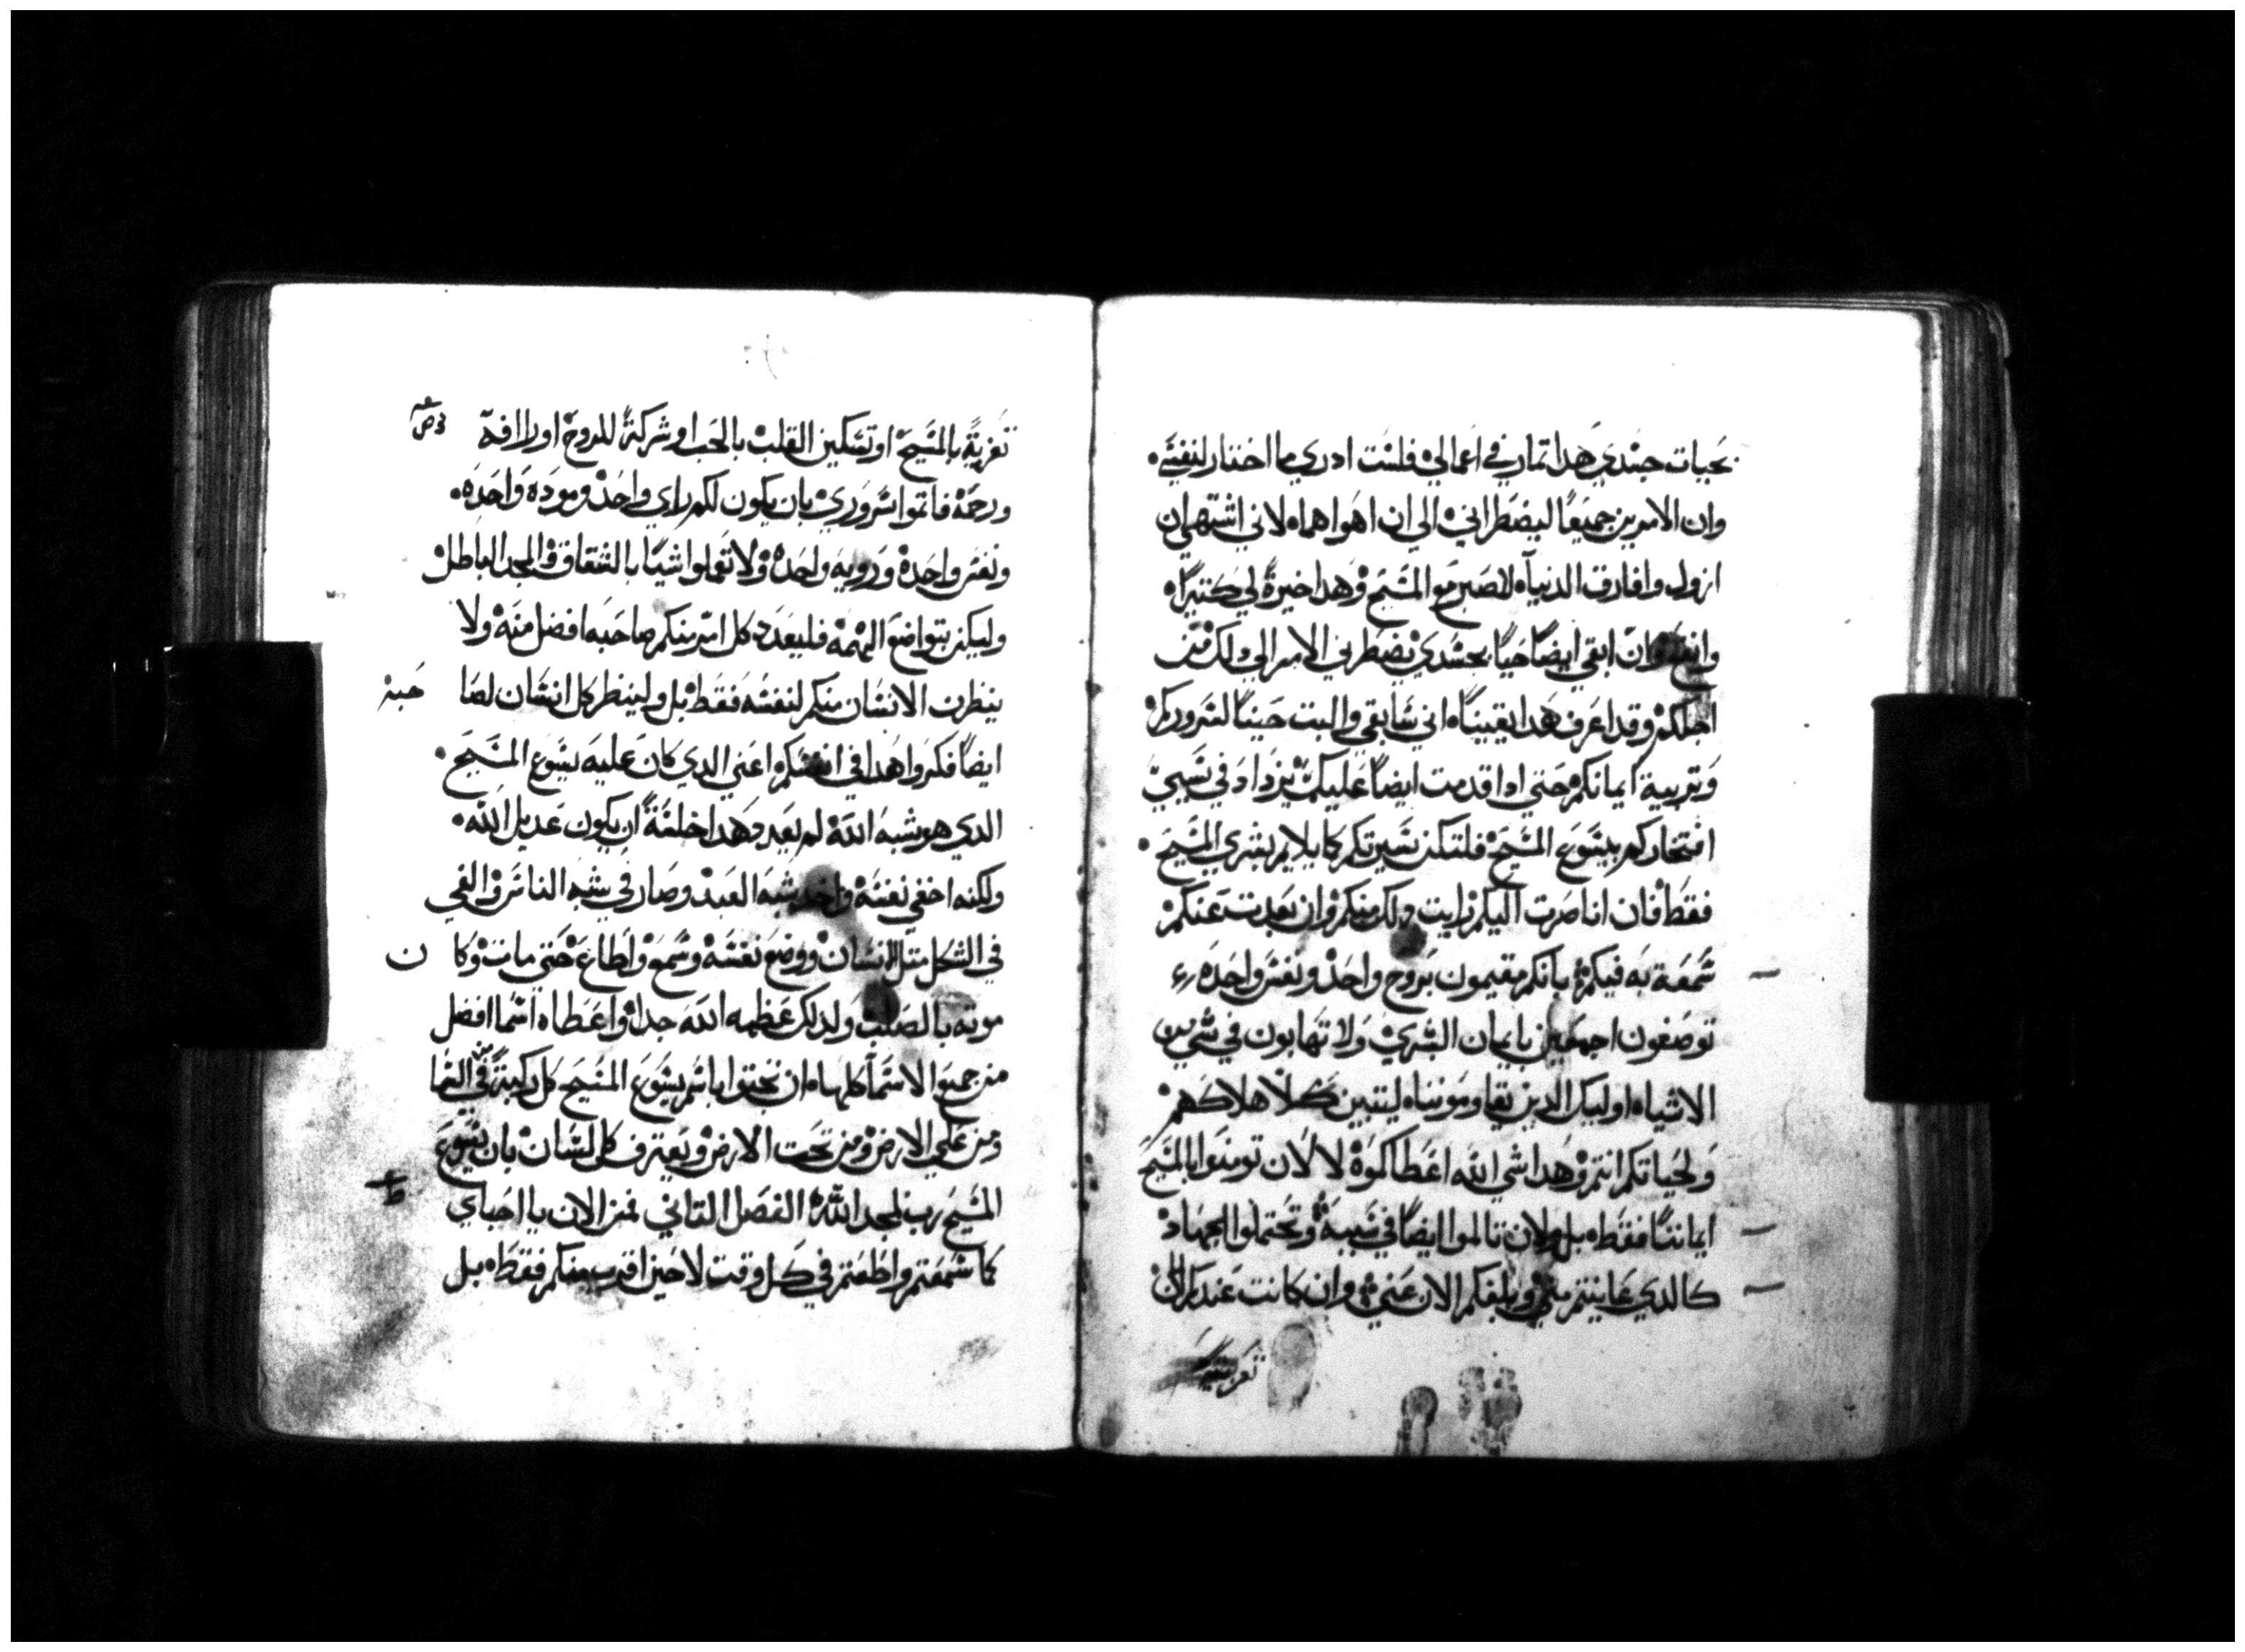 بحيات جسدي هدا تمار في اعمالي فلست ادري ما اختار لنفسي
وان الامرين جميعا ليضطراني الى ان اهواهما لاني اشتهي ان
ازول وافارق الدنيا لاصير مع المسيح وهدا خيرة لي كتيرا
وان ابقي ايضا حيا بجسدي يضطرني الامر الي دلك من
اجلكم وقد اعرف هدا يقينا اني سابقي والبت حينا لسروركم
وتربية ايمانكم حتي ادا قدمت ايضا عليكم يزداد في سببي
افتخاركم بيسوع المسيح فلتكن سيرتكم كما يلايم بشري المسيح
فقط فان انا صرت اليكم رايت دلك منكم وان بعدت عنكم
سمعة به فيكم بانكم مقيمون بروح واحد ونفس واحده
توصفون اجمعين بايمان البشري ولا تهابون في شي من
الاشياه اوليك الدين يقاومونناه ليتبين كلا هلاكهم
ولحياتكم انتم وهدا شي الله اعطاكموه لا لان تومنوا بالمسيح
ايماننا فقطه بل ولان تالموا ايضا في سببه وتحتملوا الجهاد
كالدي عاينتم مني ويبلغكم الان عني وان كانت عندكم الان
تعزية
تعزية بالمسيح او تسكين القلب بالحب او شركة للروح او راافه
ورحمه فاتموا سروري بان يكون لكم راي واحد ومودة واحده
ونفس واحده ورويه واحده ولا تعملوا شيا بالشقاق والمجد الباطل
وليكن بتواضع الهمه فليعدد كل امر منكم صاحبه افضل منه ولا
ينظرن الانسان منكم لنفسه فقط بل ولينظر كل انسان لصا حبه
ايضا فكروا هدا في انفسكم اعني الدي كان عليه يسوع المسيح
الدي هو شبه الله لم يعد هدا خلسة ان يكون عديل الله
ولكنه اخفي نفسه واخد شبه العبد وصار في شبه الناس والفي
في الشكل متل الانسان ووضع نفسه وسمع واطاع حتي مات وكا ن
موته بالصلب ولدلك عظمه الله جدا واعطاه اسما افضل
من جميع الاسما كلهاه ان تجتوا باسم يسوع المسيح كل ركبة من في السما
ومن علي الارض ومن تحت الارض ويعترف كل لسان بان يسوع
المسيح رب لمجد الله الفصل التاني فمن الان يا احباي
كما سمعتم واطعتم في كل وقت لا حين اقرب منكم فقطه بل